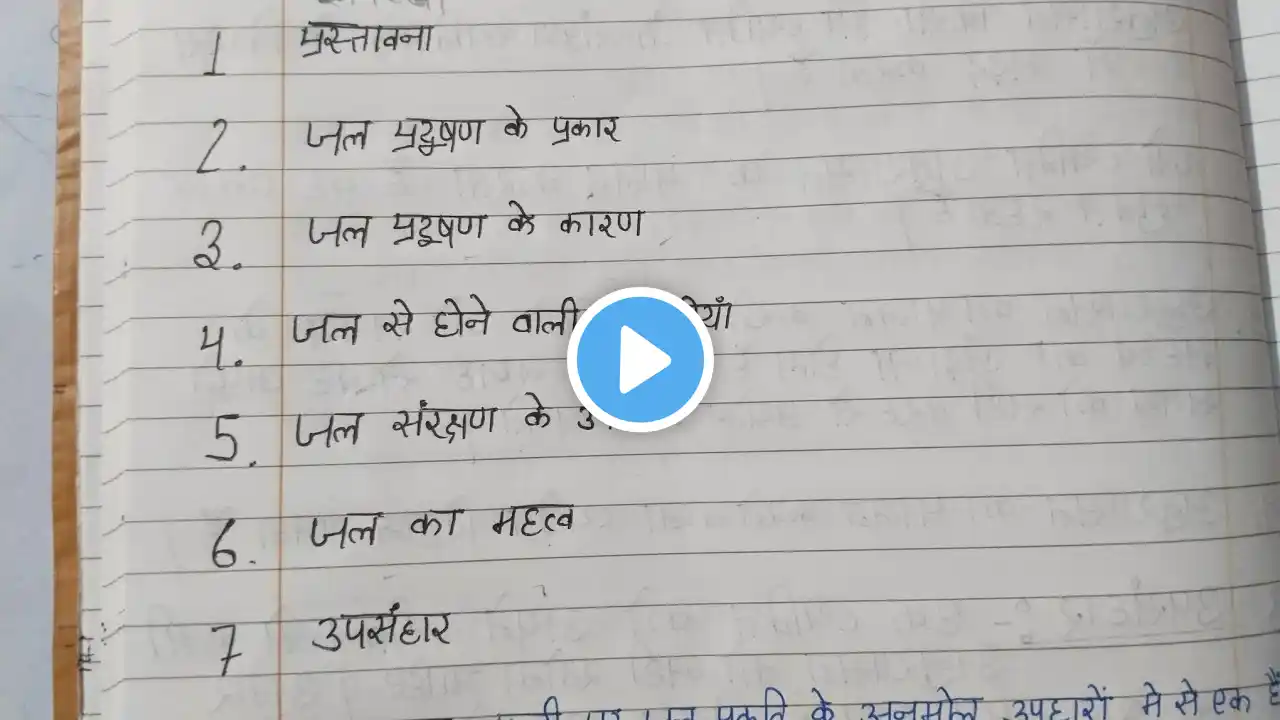 1 प्रस्तावना
2. जल प्रदुषण के प्रकार
3. जल प्रदूषण के कारण
4. जल से होने वाली
5. जल संरक्षण के
6. जल का महत्व
7 उपसंहार
प्रकृति के अनमोल उपहारों मे से एक है